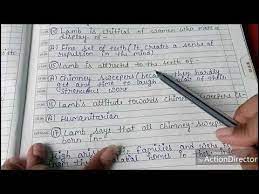 ⑭ Lamb is critical of women who make a
display of -
A) Fine set of teeth (It creates a sense of
repulsion in the mind)
⑮ Lamb is attracted to the teeth of -
A) Chimney Sweepers (because they hardly
get any time to laugh
strenuous work
⑯ Lamb's attitude towards chimney Sweepers is
A) Humanitarian
⑰ Lamb says that all chimney-sweepers
born in -
A) High aris families and
homes in
ActionDirector